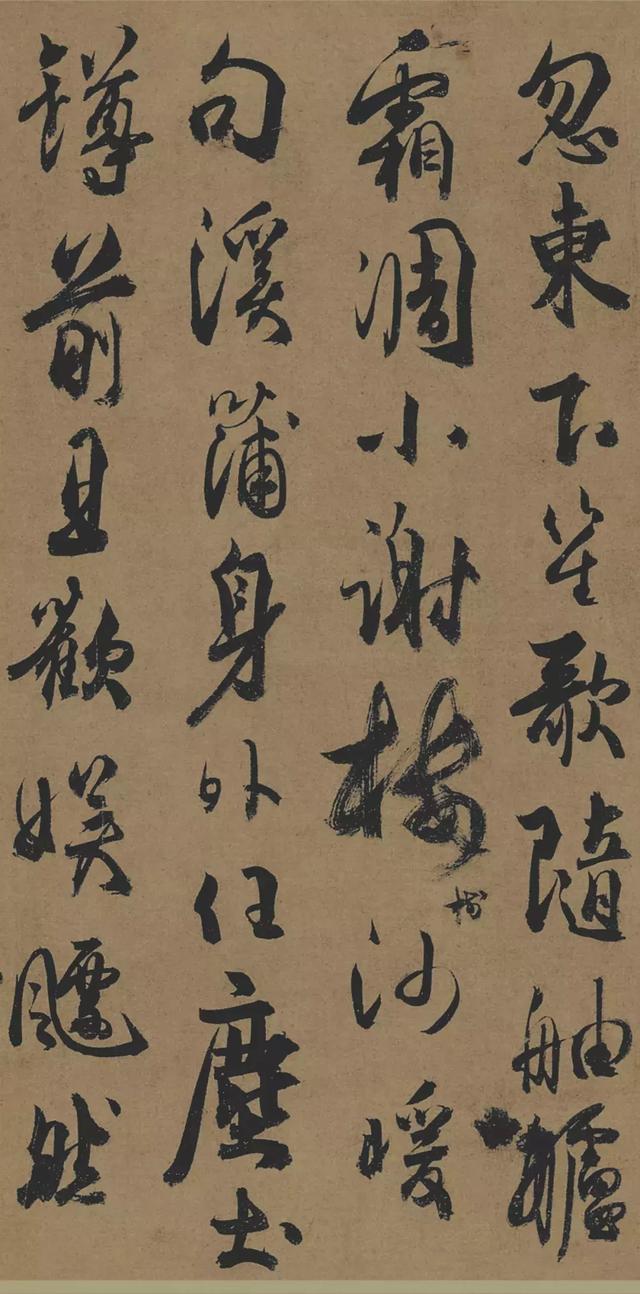 忽東下笙歌隨舳艫
霜凋小謝樓樹沙暖
句溪蒲身外任塵土
罇前且歡娛飄然